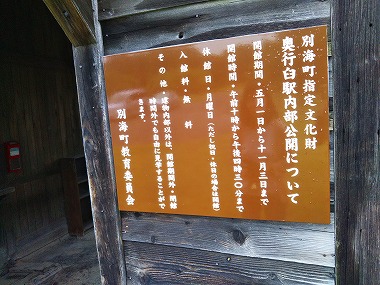 別海町指定文化財
奥行臼駅内部公開について
開館期間・五月一日から十一月三日まで
開館時間・午前十時から午後四時三〇分まで
休館日・月曜日(ただし祝日・休日の場合は開館)
入館料・無料
その他・建物内部以外は、開館期間外・閉館
時間外でも自由に見学することがで
きます。
別海町教育委員会